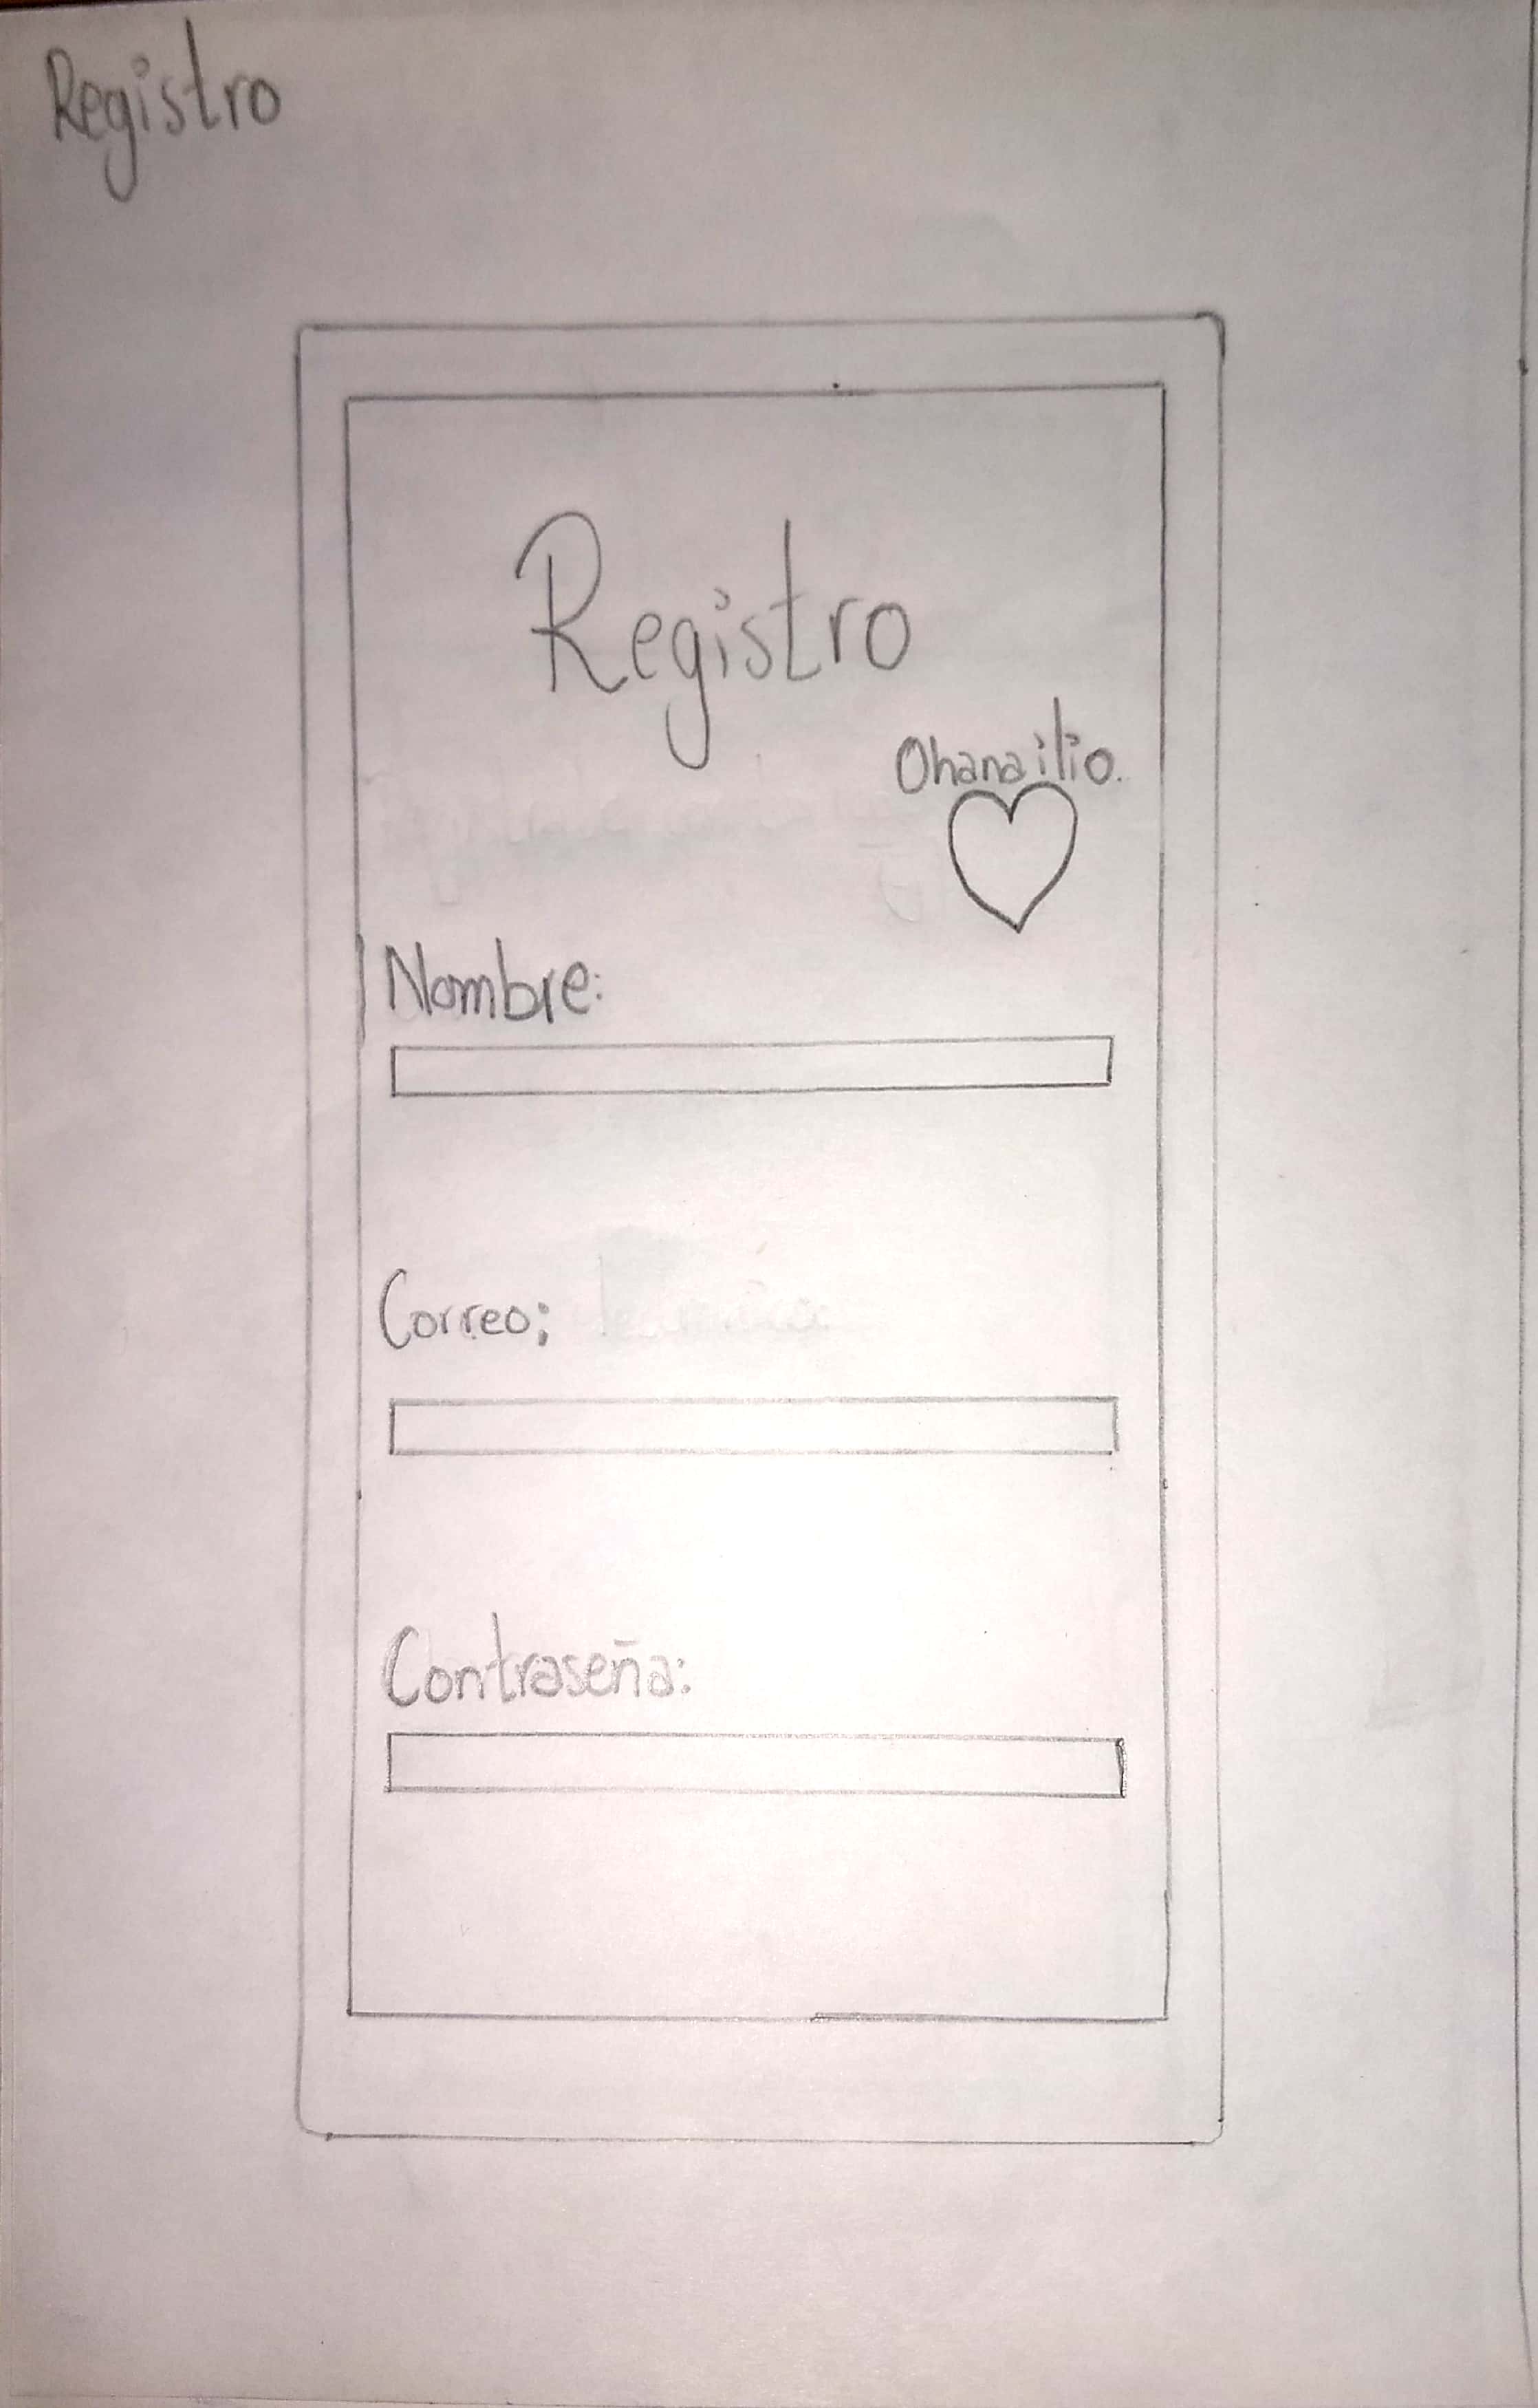 Registro
Registro
Ohanailio.
Nombre:
Correo:
Contraseña: